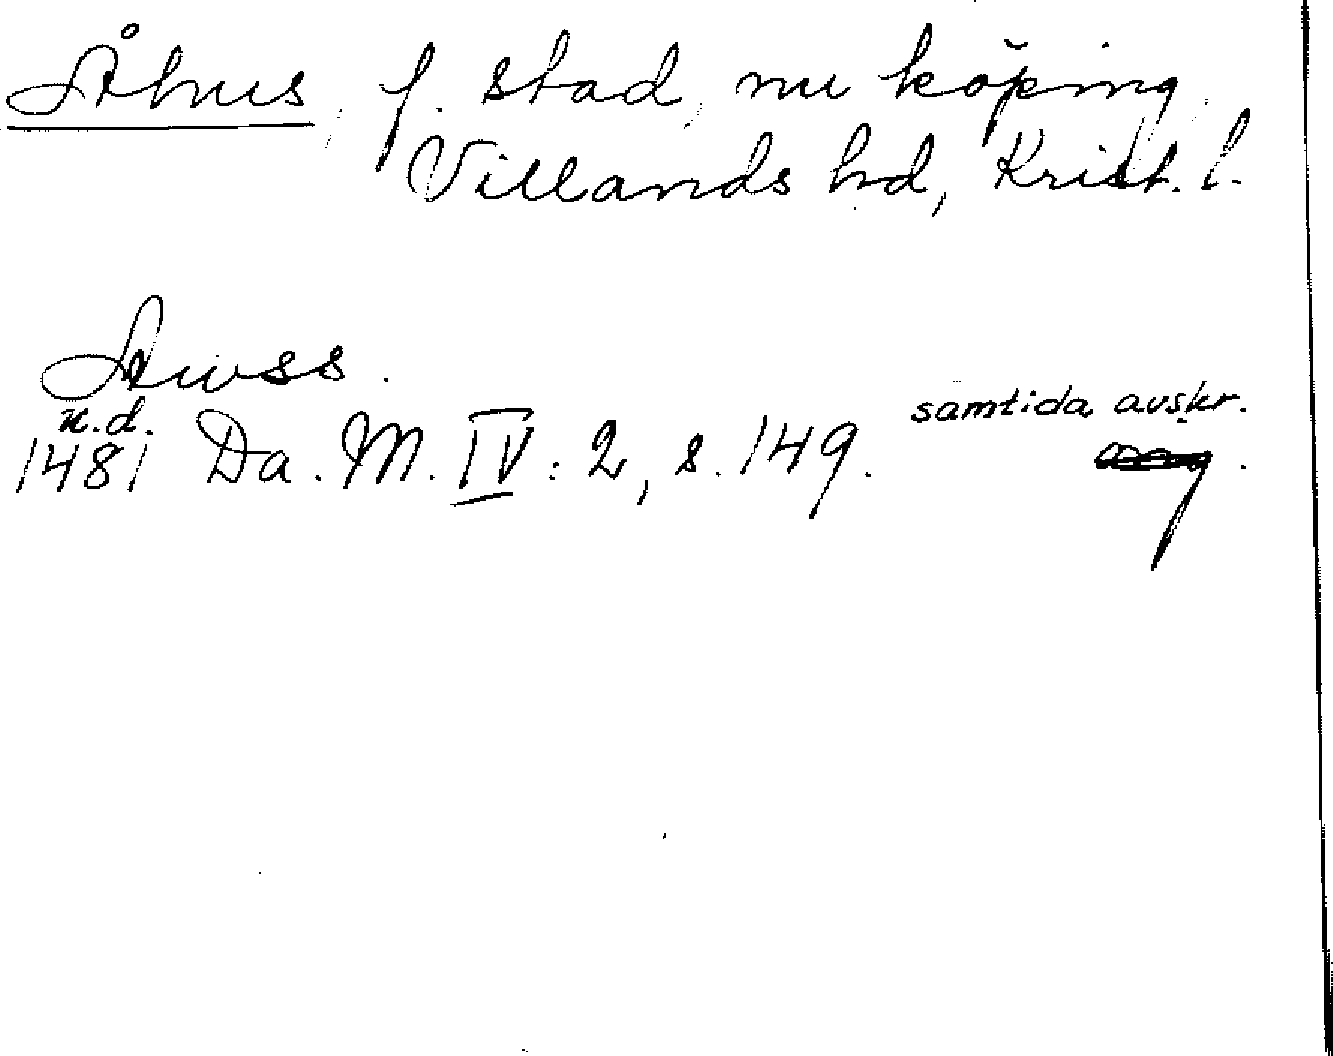 Åhus, f. stad, nu köping,
Villands hd, Krist. l.
Awss.
u.d.
samtida avskr.
1481 Da. M. IV: 2, s. 149.